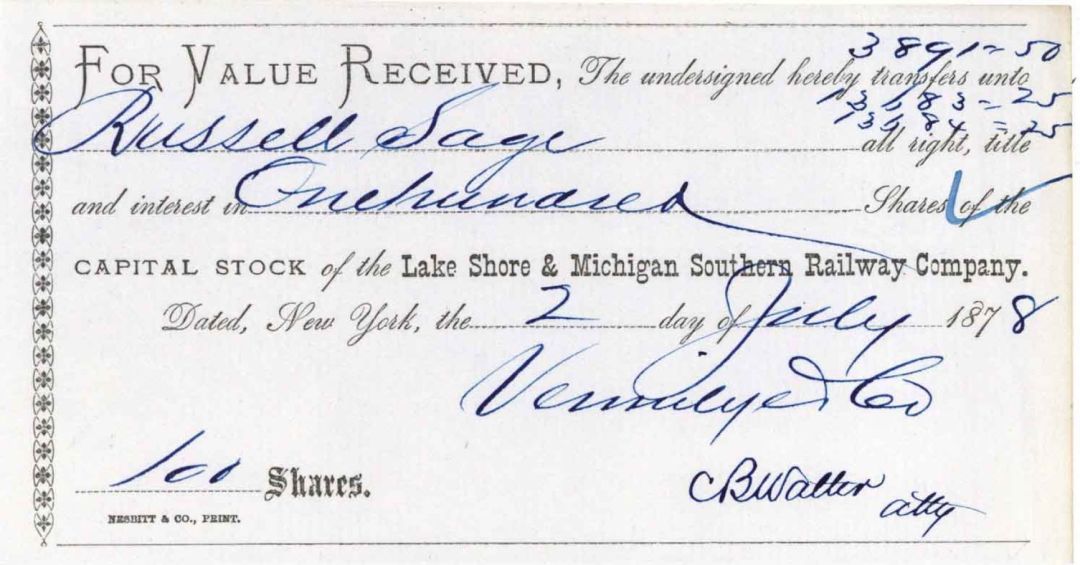 3891 = 50
FOR VALUE RECEIVED, The undersigned hereby transfers unto
13583 = 25
13584 = 25
Russell Sage all right, title
and interest in One hundred Shares of the
CAPITAL STOCK of the Lake Shore & Michigan Southern Railway Company.
Dated, New York, the 2 day of July 1878
Vermilye & Co
100 Shares.
CBWalter atty
NESBITT & CO., PRINT.